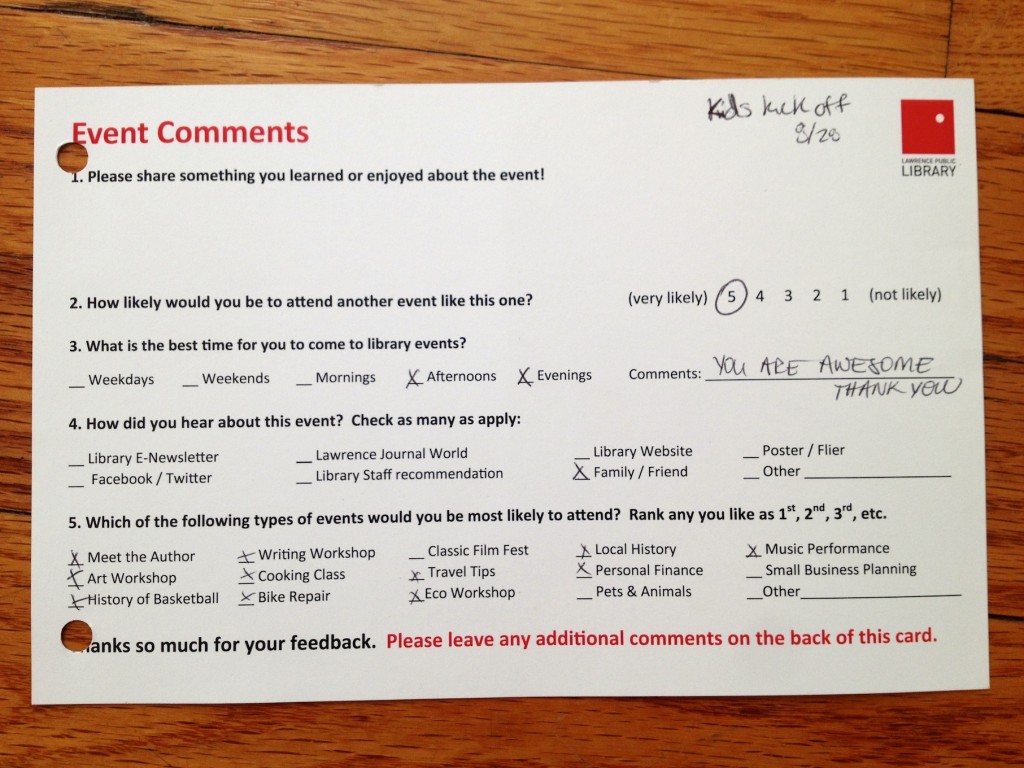 Kids kick off
8/28
Event Comments
LAWRENCE PUBLIC
LIBRARY
1. Please share something you learned or enjoyed about the event!
2. How likely would you be to attend another event like this one? (very likely) 5 4 3 2 1 (not likely)
3. What is the best time for you to come to library events?
__ Weekdays __ Weekends __ Mornings X Afternoons X Evenings Comments: YOU ARE AWESOME
THANK YOU
4. How did you hear about this event? Check as many as apply:
__ Library E-Newsletter __ Lawrence Journal World __ Library Website __ Poster / Flier
__ Facebook / Twitter __ Library Staff recommendation X Family / Friend __ Other ____
5. Which of the following types of events would you be most likely to attend? Rank any you like as 1st, 2nd, 3rd, etc.
X Meet the Author X Writing Workshop __ Classic Film Fest X Local History X Music Performance
X Art Workshop X Cooking Class X Travel Tips X Personal Finance __ Small Business Planning
X History of Basketball X Bike Repair X Eco Workshop __ Pets & Animals __ Other ____
anks so much for your feedback. Please leave any additional comments on the back of this card.